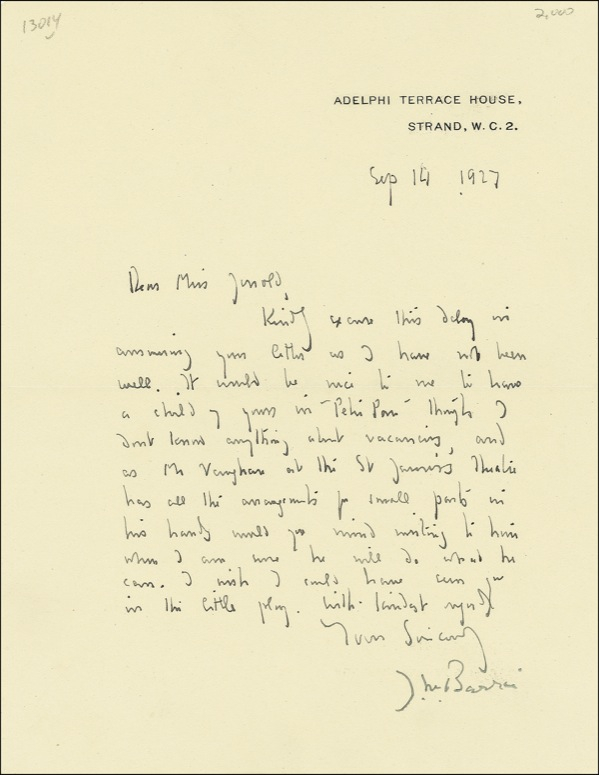 13014
2,000
ADELPHI TERRACE HOUSE,
STRAND, W.C.2.
Sep 14 1927
Dear Miss Jerrold,
Kindly excuse this delay in
answering your letter as I have not been
well. It would be nice to me to have
a child of yours in "Peter Pan" though I
dont know anything about vacancies, and
as Mr Vaughan at the St James's Theatre
has all the arrangements for small parts in
his hands would you mind writing to him
when I am sure he will do what he
can. I wish I could have seen you
in the little play. With kindest regards
Yours Sincerely
J. M. Barrie